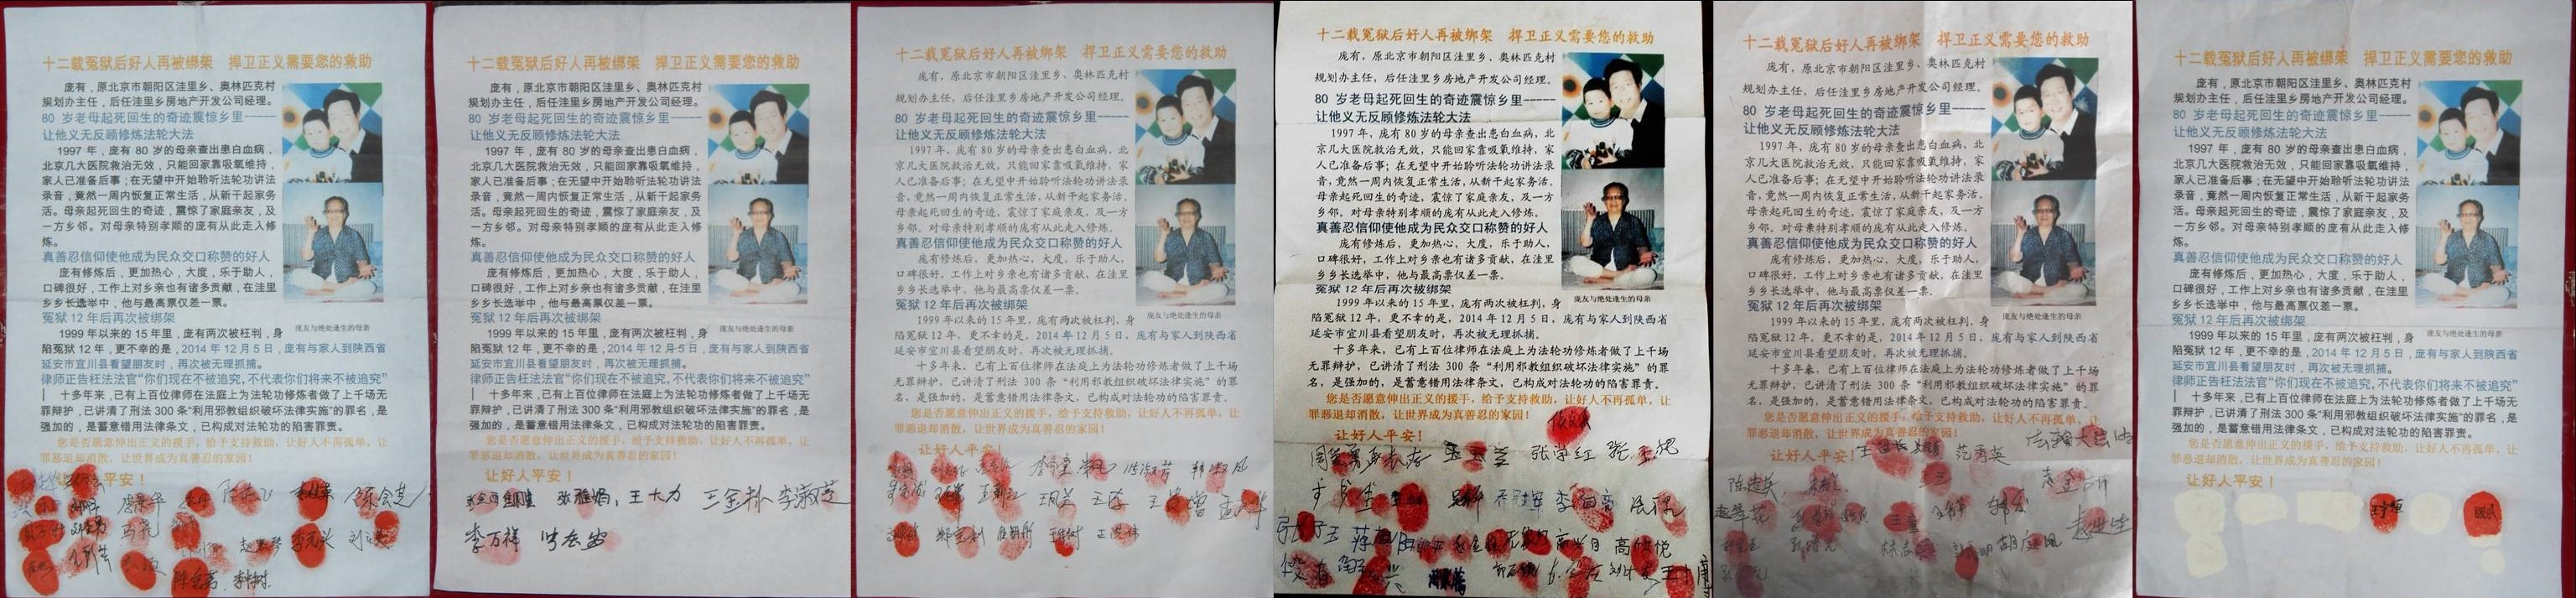 十二载冤狱后好人再被绑架 捍卫正义需要您的救助
庞有，原北京市朝阳区洼里乡、奥林匹克村
规划办主任，后任洼里乡房地产开发公司经理。
80 岁老母起死回生的奇迹震惊乡里-----
让他义无反顾修炼法轮大法
1997 年，庞有 80 岁的母亲查出患白血病，
北京几大医院救治无效，只能回家靠吸氧维持，
家人已准备后事；在无望中开始聆听法轮功讲法
录音，竟然一周内恢复正常生活，从新干起家务
活。母亲起死回生的奇迹，震惊了家庭亲友，及
一方乡邻。对母亲特别孝顺的庞有从此走入修
炼。
真善忍信仰使他成为民众交口称赞的好人
庞有修炼后，更加热心，大度，乐于助人，
口碑很好，工作上对乡亲也有诸多贡献，在洼里
乡乡长选举中，他与最高票仅差一票。
冤狱 12 年后再次被绑架
1999 年以来的 15 年里，庞有两次被枉判，身
陷冤狱 12 年，更不幸的是，2014 年 12 月 5 日，庞有与家人到陕西省
延安市宜川县看望朋友时，再次被无理抓捕。
律师正告枉法法官“你们现在不被追究，不代表你们将来不被追究”
十多年来，已有上百位律师在法庭上为法轮功修炼者做了上千场无
罪辩护，已讲清了刑法 300 条“利用邪教组织破坏法律实施”的罪名，是
强加的，是蓄意错用法律条文，已构成对法轮功的陷害罪责。
您是否愿意伸出正义的援手，给予支持救助，让好人不再孤单，让
罪恶退却消散，让世界成为真善忍的家园！
让好人平安！
庞友与绝处逢生的母亲
十二载冤狱后好人再被绑架 捍卫正义需要您的救助
庞有，原北京市朝阳区洼里乡、奥林匹克村
规划办主任，后任洼里乡房地产开发公司经理。
80 岁老母起死回生的奇迹震惊乡里-----
让他义无反顾修炼法轮大法
1997 年，庞有 80 岁的母亲查出患白血病，
北京几大医院救治无效，只能回家靠吸氧维持，
家人已准备后事；在无望中开始聆听法轮功讲法
录音，竟然一周内恢复正常生活，从新干起家务
活。母亲起死回生的奇迹，震惊了家庭亲友，及
一方乡邻。对母亲特别孝顺的庞有从此走入修
炼。
真善忍信仰使他成为民众交口称赞的好人
庞有修炼后，更加热心，大度，乐于助人，
口碑很好，工作上对乡亲也有诸多贡献，在洼里
乡乡长选举中，他与最高票仅差一票。
冤狱 12 年后再次被绑架
1999 年以来的 15 年里，庞有两次被枉判，身
陷冤狱 12 年，更不幸的是，2014 年 12 月 5 日，庞有与家人到陕西省
延安市宜川县看望朋友时，再次被无理抓捕。
律师正告枉法法官“你们现在不被追究，不代表你们将来不被追究”
十多年来，已有上百位律师在法庭上为法轮功修炼者做了上千场无
罪辩护，已讲清了刑法 300 条“利用邪教组织破坏法律实施”的罪名，是
强加的，是蓄意错用法律条文，已构成对法轮功的陷害罪责。
您是否愿意伸出正义的援手，给予支持救助，让好人不再孤单，让
罪恶退却消散，让世界成为真善忍的家园！
让好人平安！
庞友与绝处逢生的母亲
王大力 王金朴 李淑芝
李万祥
十二载冤狱后好人再被绑架 捍卫正义需要您的救助
庞有，原北京市朝阳区洼里乡、奥林匹克村
规划办主任，后任洼里乡房地产开发公司经理。
80 岁老母起死回生的奇迹震惊乡里-----
让他义无反顾修炼法轮大法
1997 年，庞有 80 岁的母亲查出患白血病，北
京几大医院救治无效，只能回家靠吸氧维持，家
人已准备后事；在无望中开始聆听法轮功讲法录
音，竟然一周内恢复正常生活，从新干起家务活。
母亲起死回生的奇迹，震惊了家庭亲友，及一方
乡邻。对母亲特别孝顺的庞有从此走入修炼。
真善忍信仰使他成为民众交口称赞的好人
庞有修炼后，更加热心，大度，乐于助人，
口碑很好，工作上对乡亲也有诸多贡献，在洼里
乡乡长选举中，他与最高票仅差一票。
冤狱 12 年后再次被绑架
1999 年以来的 15 年里，庞有两次被枉判，身
陷冤狱 12 年，更不幸的是，2014 年 12 月 5 日，庞有与家人到陕西省
延安市宜川县看望朋友时，再次被无理抓捕。
十多年来，已有上百位律师在法庭上为法轮功修炼者做了上千场
无罪辩护，已讲清了刑法 300 条“利用邪教组织破坏法律实施”的罪
名，是强加的，是蓄意错用法律条文，已构成对法轮功的陷害罪责。
您是否愿意伸出正义的援手，给予支持救助，让好人不再孤单，让
罪恶退却消散，让世界成为真善忍的家园！
让好人平安！
庞友与绝处逢生的母亲
十二载冤狱后好人再被绑架 捍卫正义需要您的救助
庞有，原北京市朝阳区洼里乡、奥林匹克村
规划办主任，后任洼里乡房地产开发公司经理。
80 岁老母起死回生的奇迹震惊乡里-----
让他义无反顾修炼法轮大法
1997 年，庞有 80 岁的母亲查出患白血病，北
京几大医院救治无效，只能回家靠吸氧维持，家
人已准备后事；在无望中开始聆听法轮功讲法录
音，竟然一周内恢复正常生活，从新干起家务活。
母亲起死回生的奇迹，震惊了家庭亲友，及一方
乡邻。对母亲特别孝顺的庞有从此走入修炼。
真善忍信仰使他成为民众交口称赞的好人
庞有修炼后，更加热心，大度，乐于助人，
口碑很好，工作上对乡亲也有诸多贡献，在洼里
乡乡长选举中，他与最高票仅差一票。
冤狱 12 年后再次被绑架
1999 年以来的 15 年里，庞有两次被枉判，身
陷冤狱 12 年，更不幸的是，2014 年 12 月 5 日，庞有与家人到陕西省
延安市宜川县看望朋友时，再次被无理抓捕。
十多年来，已有上百位律师在法庭上为法轮功修炼者做了上千场
无罪辩护，已讲清了刑法 300 条“利用邪教组织破坏法律实施”的罪
名，是强加的，是蓄意错用法律条文，已构成对法轮功的陷害罪责。
您是否愿意伸出正义的援手，给予支持救助，让好人不再孤单，让
罪恶退却消散，让世界成为真善忍的家园！
让好人平安！
庞友与绝处逢生的母亲
张学红
高兴月 高欣悦
十二载冤狱后好人再被绑架 捍卫正义需要您的救助
庞有，原北京市朝阳区洼里乡、奥林匹克村
规划办主任，后任洼里乡房地产开发公司经理。
80 岁老母起死回生的奇迹震惊乡里-----
让他义无反顾修炼法轮大法
1997 年，庞有 80 岁的母亲查出患白血病，北
京几大医院救治无效，只能回家靠吸氧维持，家
人已准备后事；在无望中开始聆听法轮功讲法录
音，竟然一周内恢复正常生活，从新干起家务活。
母亲起死回生的奇迹，震惊了家庭亲友，及一方
乡邻。对母亲特别孝顺的庞有从此走入修炼。
真善忍信仰使他成为民众交口称赞的好人
庞有修炼后，更加热心，大度，乐于助人，
口碑很好，工作上对乡亲也有诸多贡献，在洼里
乡乡长选举中，他与最高票仅差一票。
冤狱 12 年后再次被绑架
1999 年以来的 15 年里，庞有两次被枉判，身
陷冤狱 12 年，更不幸的是，2014 年 12 月 5 日，庞有与家人到陕西省
延安市宜川县看望朋友时，再次被无理抓捕。
十多年来，已有上百位律师在法庭上为法轮功修炼者做了上千场
无罪辩护，已讲清了刑法 300 条“利用邪教组织破坏法律实施”的罪
名，是强加的，是蓄意错用法律条文，已构成对法轮功的陷害罪责。
您是否愿意伸出正义的援手，给予支持救助，让好人不再孤单，让
罪恶退却消散，让世界成为真善忍的家园！
让好人平安！
庞友与绝处逢生的母亲
范秀英
十二载冤狱后好人再被绑架 捍卫正义需要您的救助
庞有，原北京市朝阳区洼里乡、奥林匹克村
规划办主任，后任洼里乡房地产开发公司经理。
80 岁老母起死回生的奇迹震惊乡里-----
让他义无反顾修炼法轮大法
1997 年，庞有 80 岁的母亲查出患白血病，
北京几大医院救治无效，只能回家靠吸氧维持，
家人已准备后事；在无望中开始聆听法轮功讲法
录音，竟然一周内恢复正常生活，从新干起家务
活。母亲起死回生的奇迹，震惊了家庭亲友，及
一方乡邻。对母亲特别孝顺的庞有从此走入修
炼。
真善忍信仰使他成为民众交口称赞的好人
庞有修炼后，更加热心，大度，乐于助人，
口碑很好，工作上对乡亲也有诸多贡献，在洼里
乡乡长选举中，他与最高票仅差一票。
冤狱 12 年后再次被绑架
1999 年以来的 15 年里，庞有两次被枉判，身
陷冤狱 12 年，更不幸的是，2014 年 12 月 5 日，庞有与家人到陕西省
延安市宜川县看望朋友时，再次被无理抓捕。
律师正告枉法法官“你们现在不被追究，不代表你们将来不被追究”
十多年来，已有上百位律师在法庭上为法轮功修炼者做了上千场无
罪辩护，已讲清了刑法 300 条“利用邪教组织破坏法律实施”的罪名，是
强加的，是蓄意错用法律条文，已构成对法轮功的陷害罪责。
您是否愿意伸出正义的援手，给予支持救助，让好人不再孤单，让
罪恶退却消散，让世界成为真善忍的家园！
让好人平安！
庞友与绝处逢生的母亲